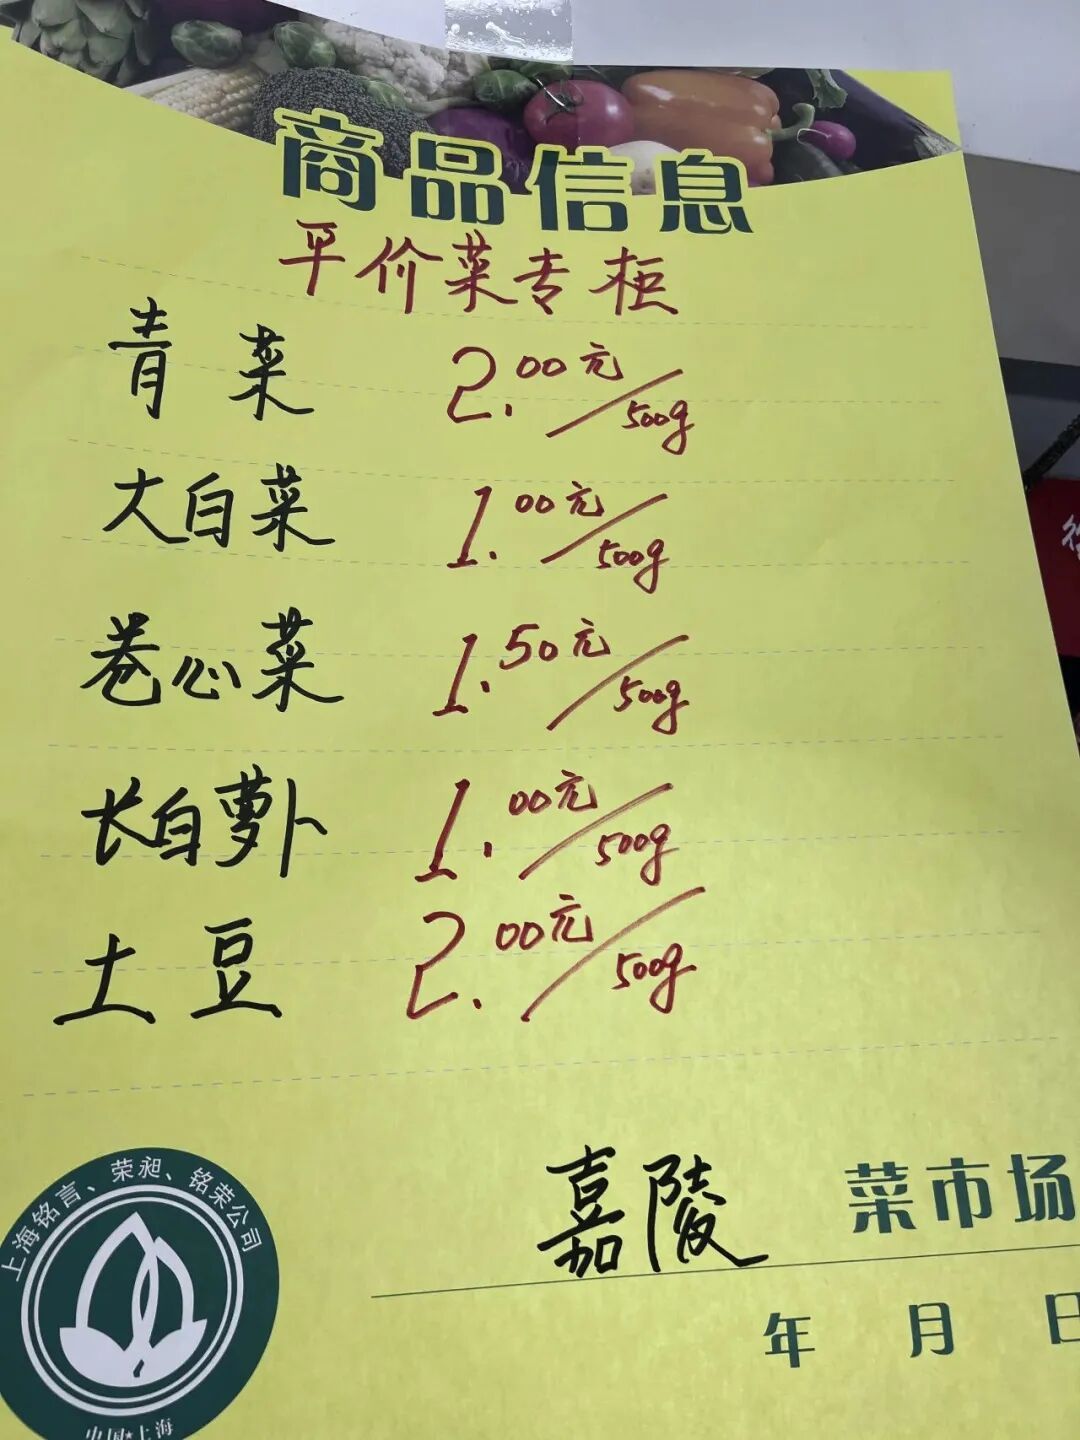 商品信息
平价菜专柜
青菜 2.00元/500g
大白菜 1.00元/500g
卷心菜 1.50元/500g
长白萝卜 1.00元/500g
土豆 2.00元/500g
嘉陵 菜市场
年 月 日
上海铭言、荣昶、铭荣公司
中国★上海